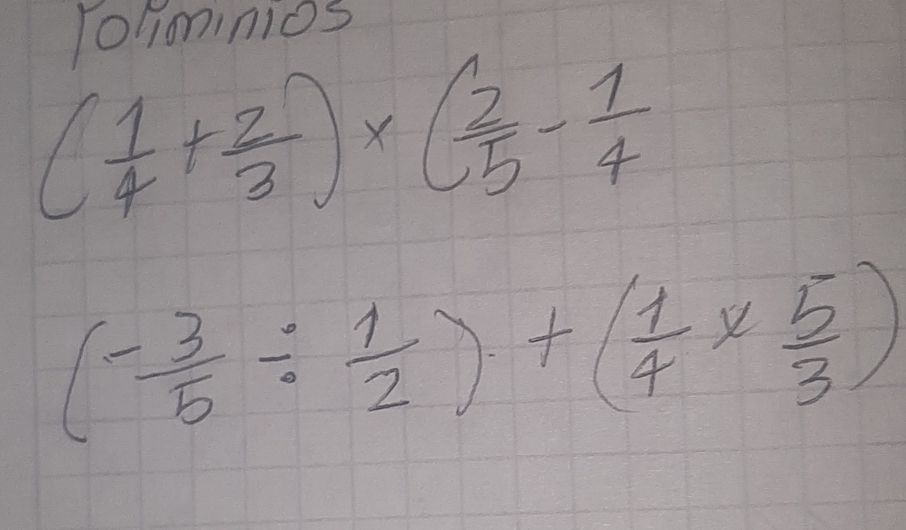 Poliminios
(1/4 + 2/3) × (2/5 - 1/4
(-3/5 ÷ 1/2) + (1/4 × 5/3)